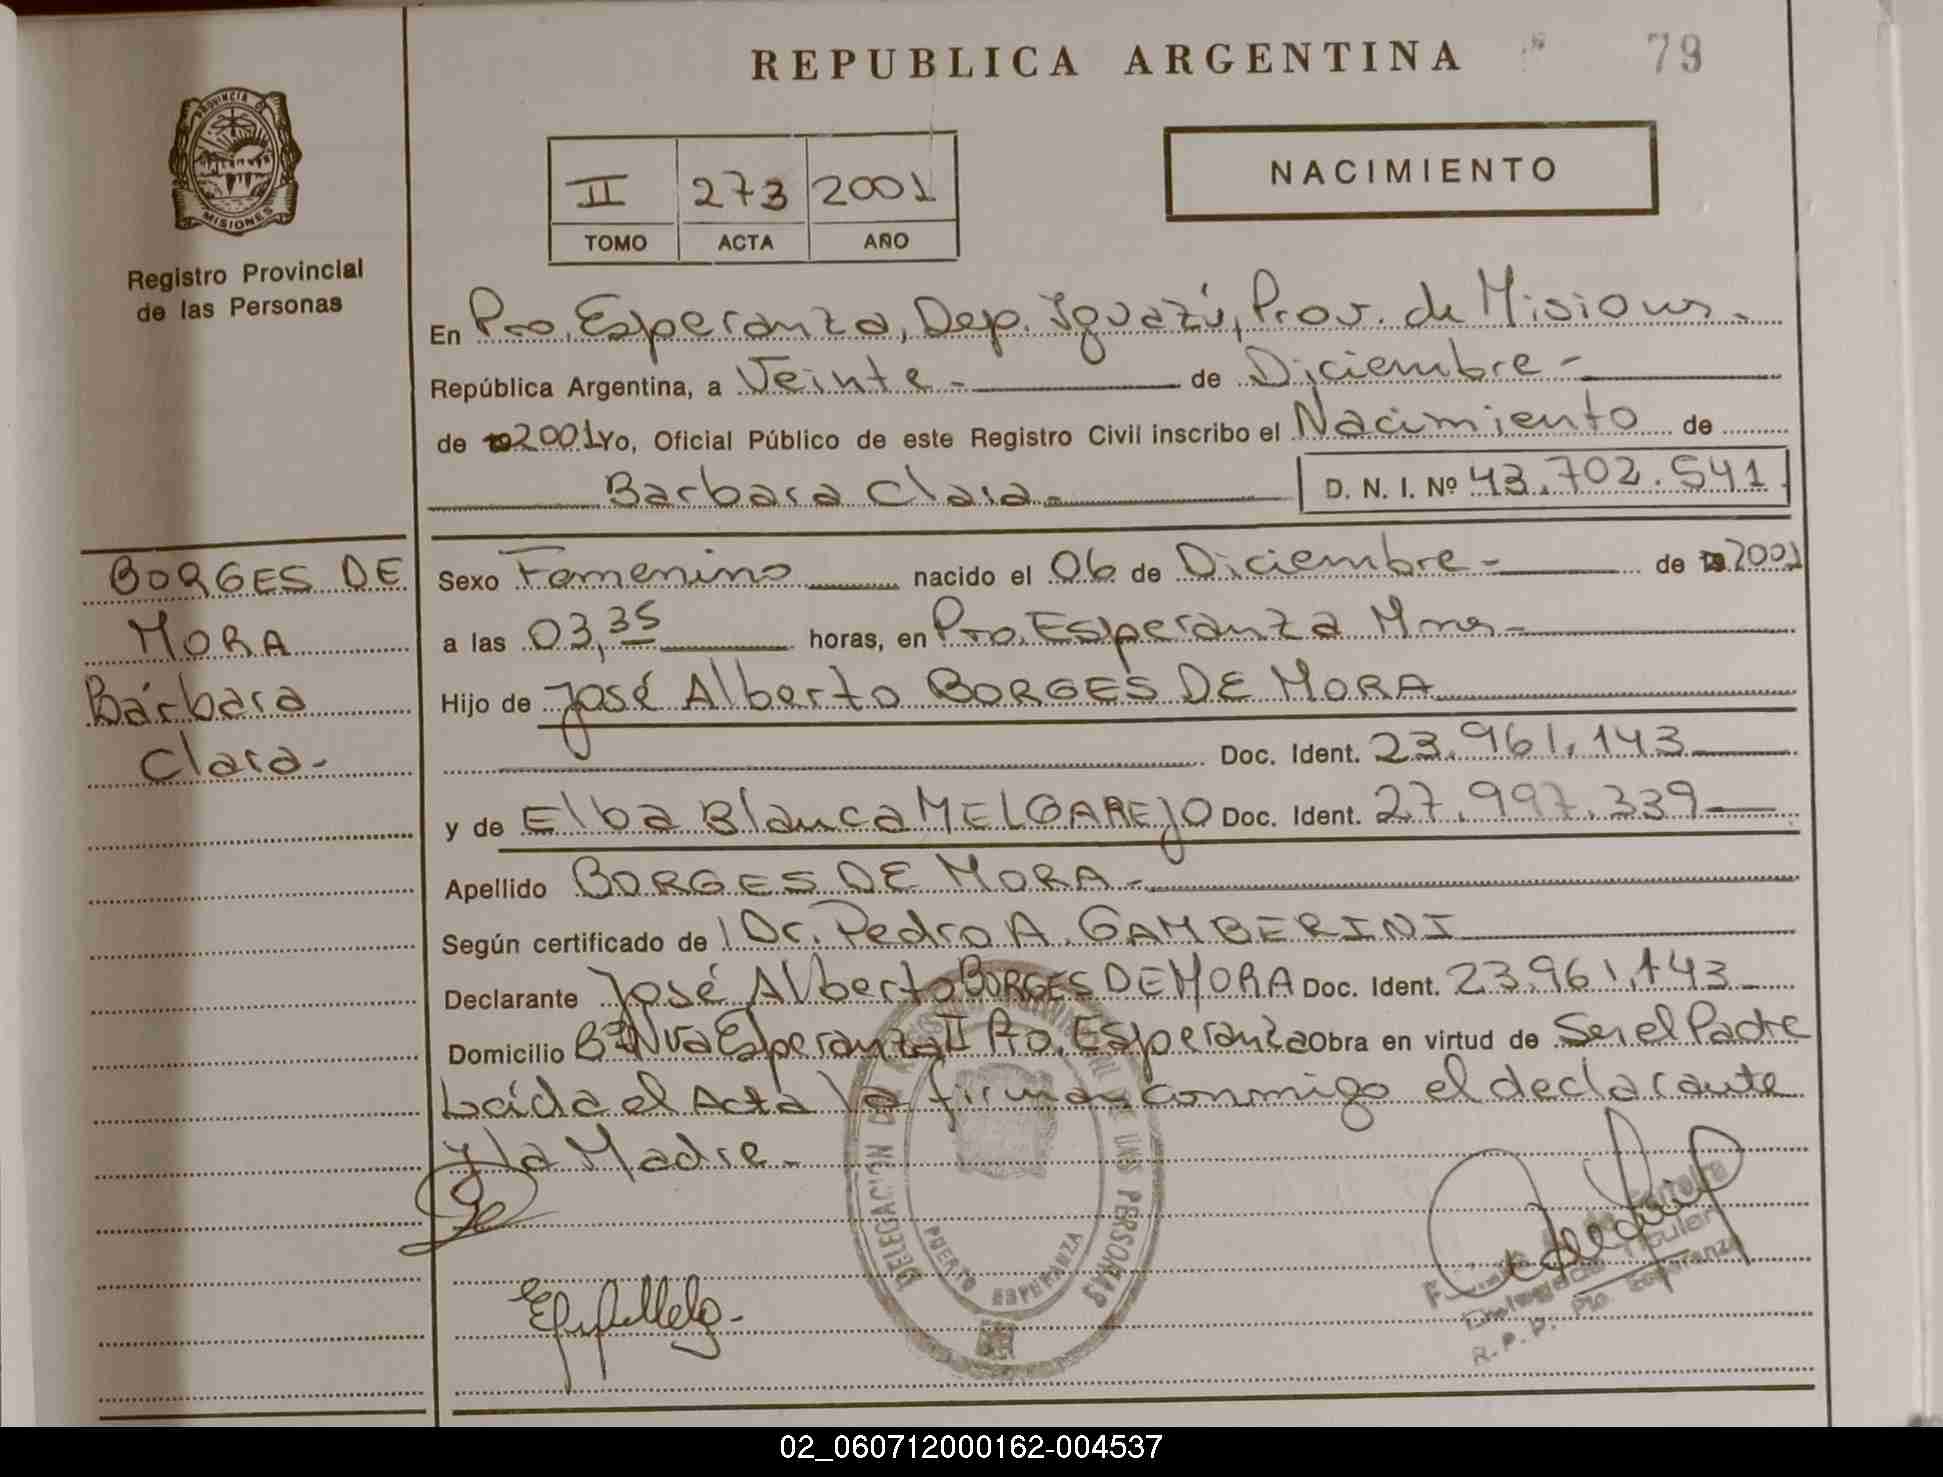 REPUBLICA ARGENTINA
79
PROVINCIA DE
MISIONES
Registro Provincial
de las Personas
II 273 2001
TOMO ACTA AÑO
NACIMIENTO
En Pto. Esperanza, Dep. Iguazú, Prov. de Misiones.
República Argentina, a Veinte - de Diciembre -
de 19 2001 Yo, Oficial Público de este Registro Civil inscribo el Nacimiento de
Barbara Clara - D. N. I. Nº 43.702.541
BORGES DE
MORA
Bárbara
Clara -
Sexo Femenino nacido el 06 de Diciembre - de 19 2001
a las 03,35 horas, en Pto. Esperanza Mnes -
Hijo de José Alberto BORGES DE MORA
Doc. Ident. 23.961.143
y de Elba Blanca MELGAREJO Doc. Ident. 27.997.339
Apellido BORGES DE MORA -
Según certificado de Dr. Pedro A. GAMBERINI
Declarante José Alberto BORGES DE MORA Doc. Ident. 23.961.143
Domicilio Bº Nva Esperanza II Pto. Esperanza Obra en virtud de Ser el Padre
Leída el Acta la firman conmigo el declarante
y la Madre -
DELEGACIÓN DEL REGISTRO PROVINCIAL DE LAS PERSONAS
PUERTO ESPERANZA
Titular
R. P. P. Pto. Esperanza
02_060712000162-004537